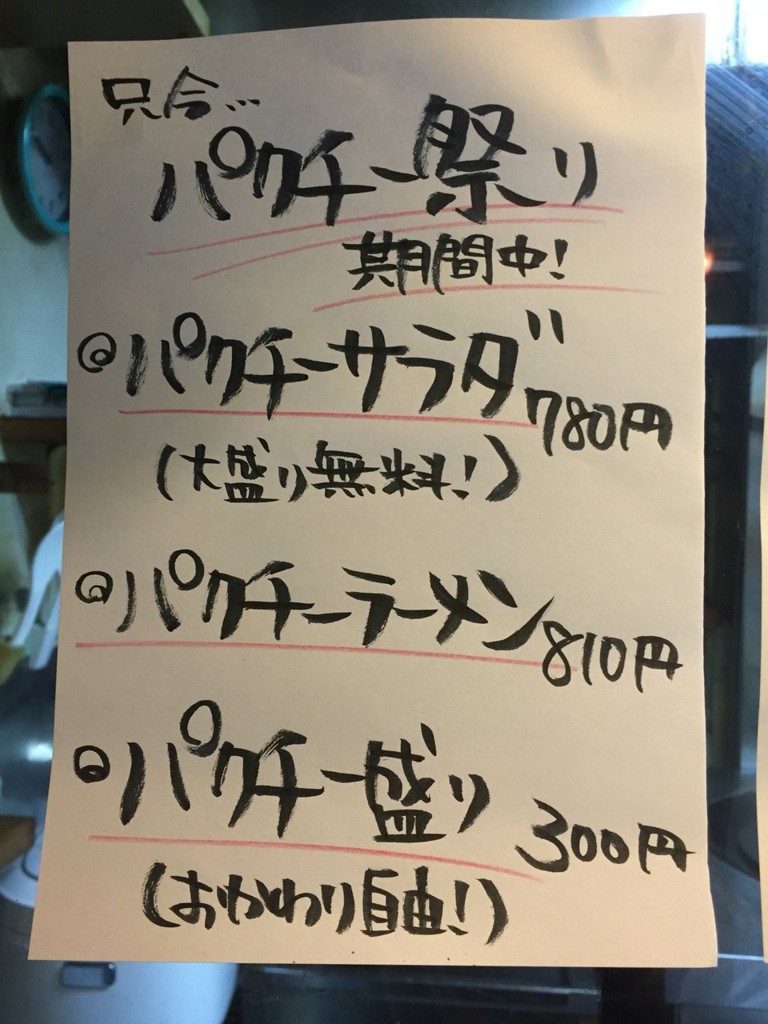 只今…
パクチー祭り
期間中!
◎パクチーサラダ 780円
(大盛り無料!)
◎パクチーラーメン 810円
◎パクチー盛り 300円
(おかわり自由!)